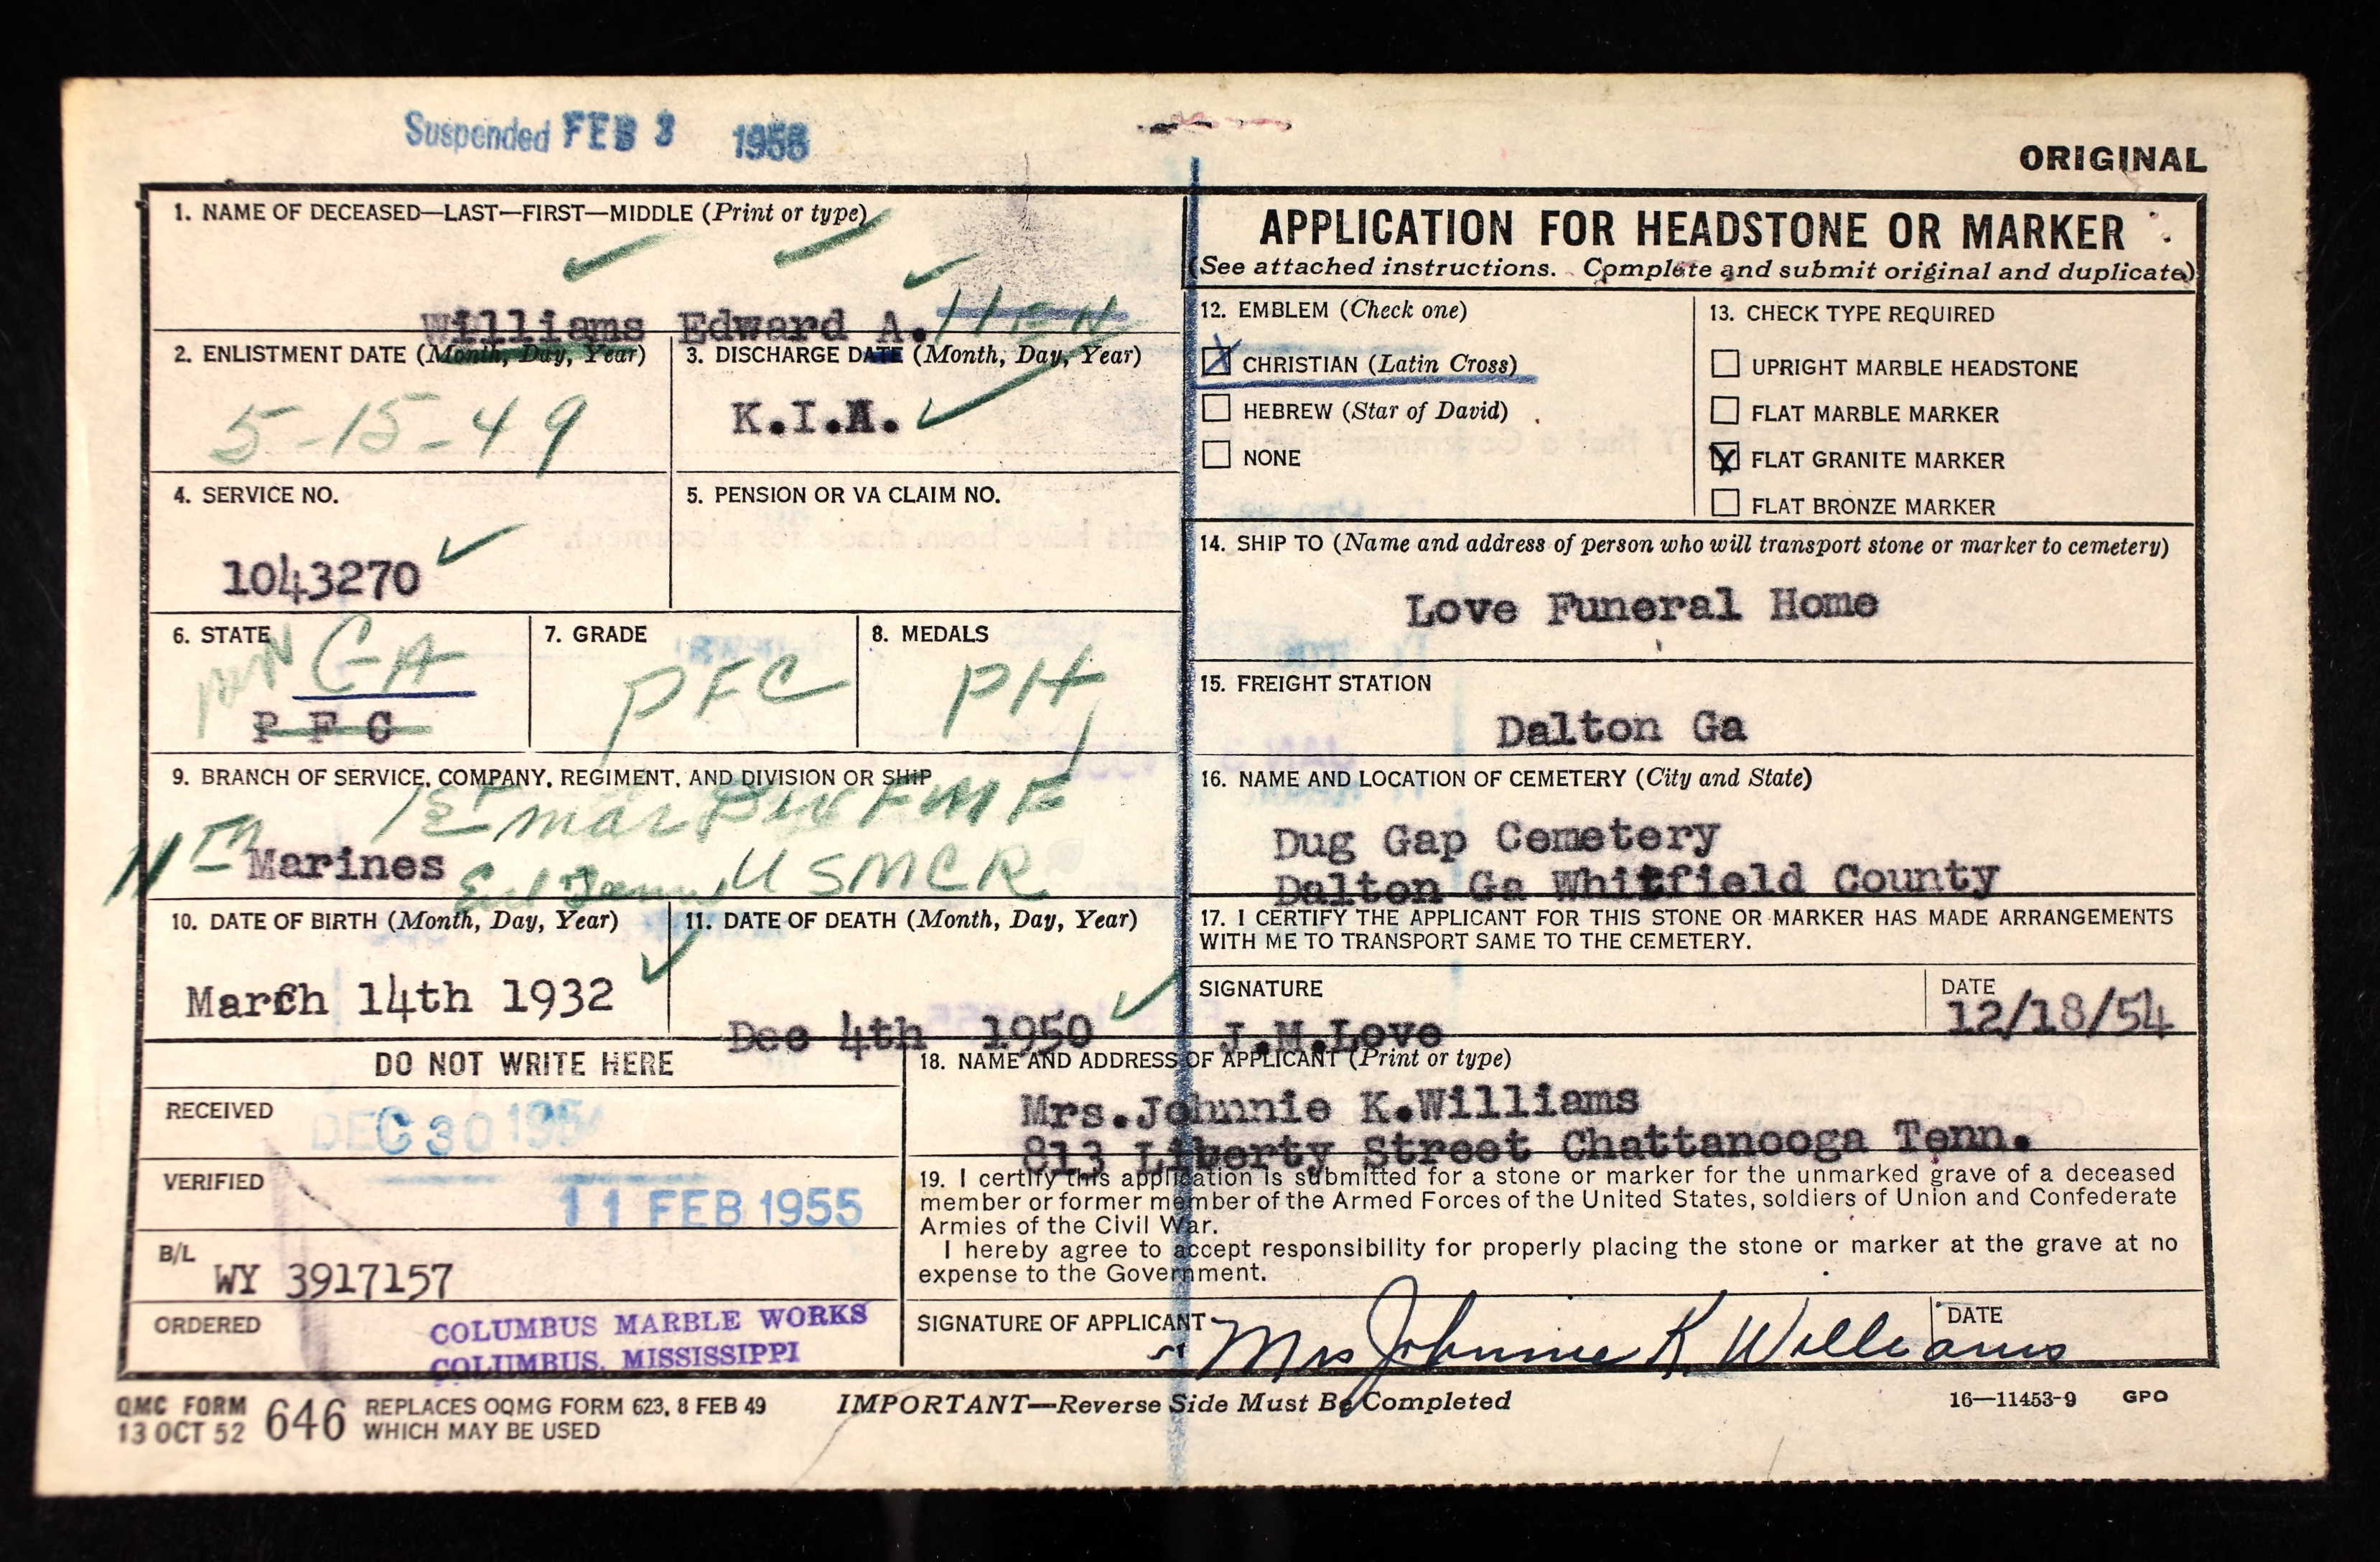 Suspended FEB 3 1955
ORIGINAL
1. NAME OF DECEASED—LAST—FIRST—MIDDLE (Print or type)
Williams Edward A.
2. ENLISTMENT DATE (Month, Day, Year)
5-15-49
3. DISCHARGE DATE (Month, Day, Year)
K.I.A.
4. SERVICE NO.
1043270
5. PENSION OR VA CLAIM NO.
6. STATE
GA
P F C
7. GRADE
PFC
8. MEDALS
PH
9. BRANCH OF SERVICE, COMPANY, REGIMENT, AND DIVISION OR SHIP
1st mar Div FMF
11TH Marines USMCR
10. DATE OF BIRTH (Month, Day, Year)
March 14th 1932
11. DATE OF DEATH (Month, Day, Year)
Dec 4th 1950
APPLICATION FOR HEADSTONE OR MARKER
(See attached instructions. Complete and submit original and duplicate)
12. EMBLEM (Check one)
CHRISTIAN (Latin Cross)
HEBREW (Star of David)
NONE
13. CHECK TYPE REQUIRED
UPRIGHT MARBLE HEADSTONE
FLAT MARBLE MARKER
FLAT GRANITE MARKER
FLAT BRONZE MARKER
14. SHIP TO (Name and address of person who will transport stone or marker to cemetery)
Love Funeral Home
15. FREIGHT STATION
Dalton Ga
16. NAME AND LOCATION OF CEMETERY (City and State)
Dug Gap Cemetery
Dalton Ga Whitfield County
17. I CERTIFY THE APPLICANT FOR THIS STONE OR MARKER HAS MADE ARRANGEMENTS
WITH ME TO TRANSPORT SAME TO THE CEMETERY.
SIGNATURE
J.M.Love
DATE
12/18/54
DO NOT WRITE HERE
RECEIVED
DEC 30 1954
VERIFIED
11 FEB 1955
B/L
WY 3917157
ORDERED
COLUMBUS MARBLE WORKS
COLUMBUS, MISSISSIPPI
18. NAME AND ADDRESS OF APPLICANT (Print or type)
Mrs.Johnnie K.Williams
813 Liberty Street Chattanooga Tenn.
19. I certify this application is submitted for a stone or marker for the unmarked grave of a deceased
member or former member of the Armed Forces of the United States, soldiers of Union and Confederate
Armies of the Civil War.
I hereby agree to accept responsibility for properly placing the stone or marker at the grave at no
expense to the Government.
SIGNATURE OF APPLICANT
Mrs Johnnie K Williams
DATE
QMC FORM
13 OCT 52
646
REPLACES OQMG FORM 623, 8 FEB 49
WHICH MAY BE USED
IMPORTANT—Reverse Side Must Be Completed
16—11453-9 GPO